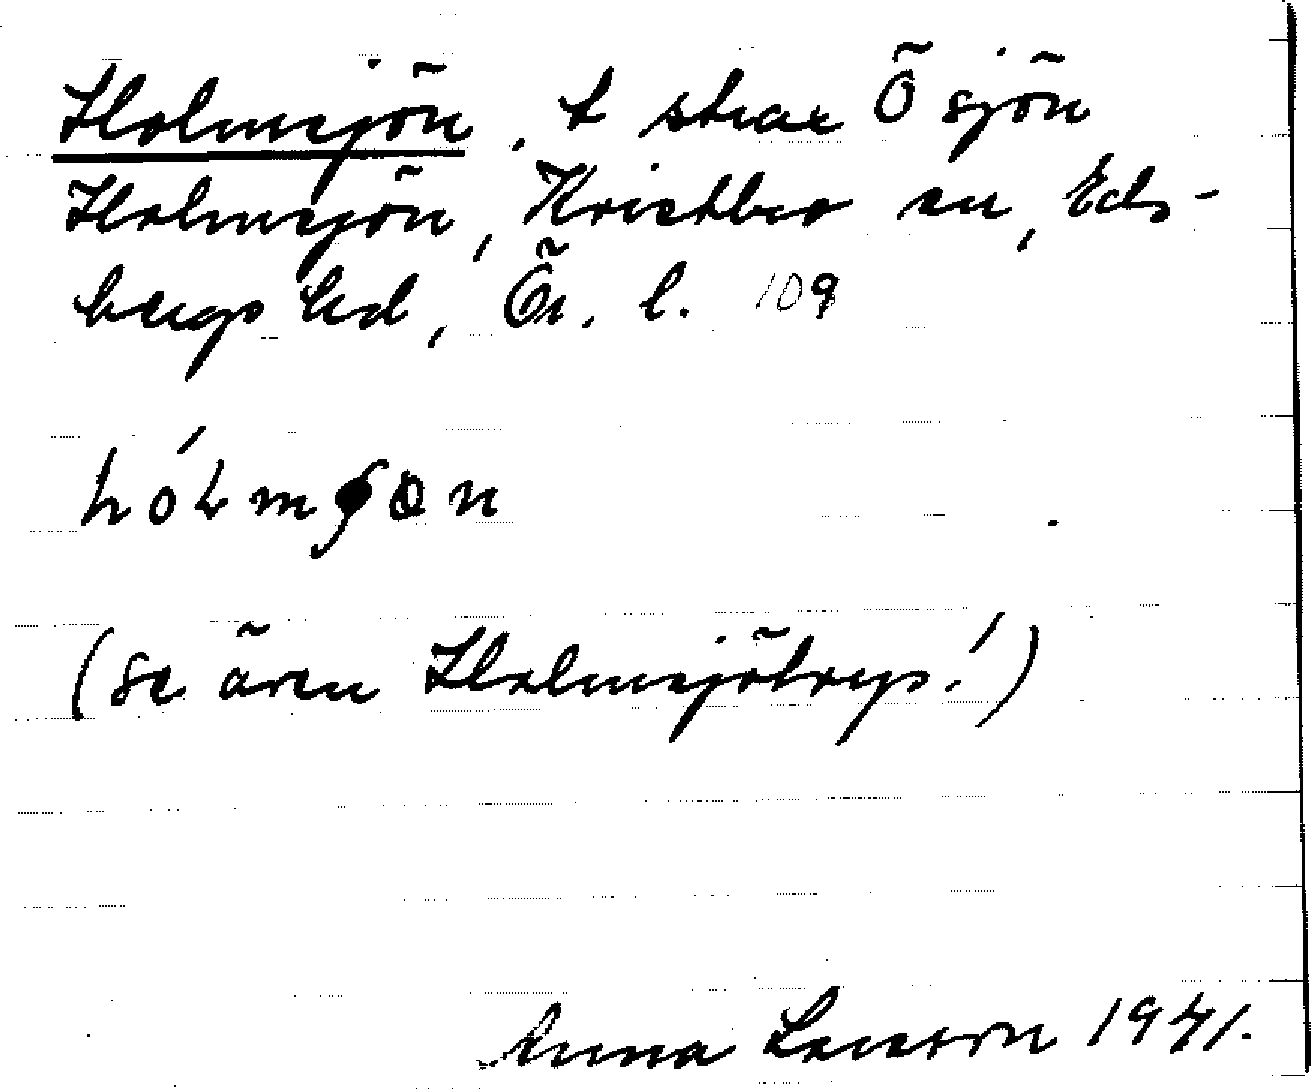 Holmsjön, t strax Ö sjön
Holmsjön, Kristbro sn, Eds-
bergs hd, Ör. l. 109
hólmʃɷn
(se även Holmsjötorp!)
Anna Larsson 1941.